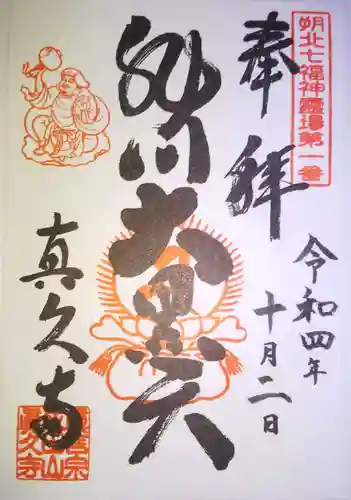 朔北七福神霊場第一番
奉拝
令和四年
十月二日
大黒天
真久寺